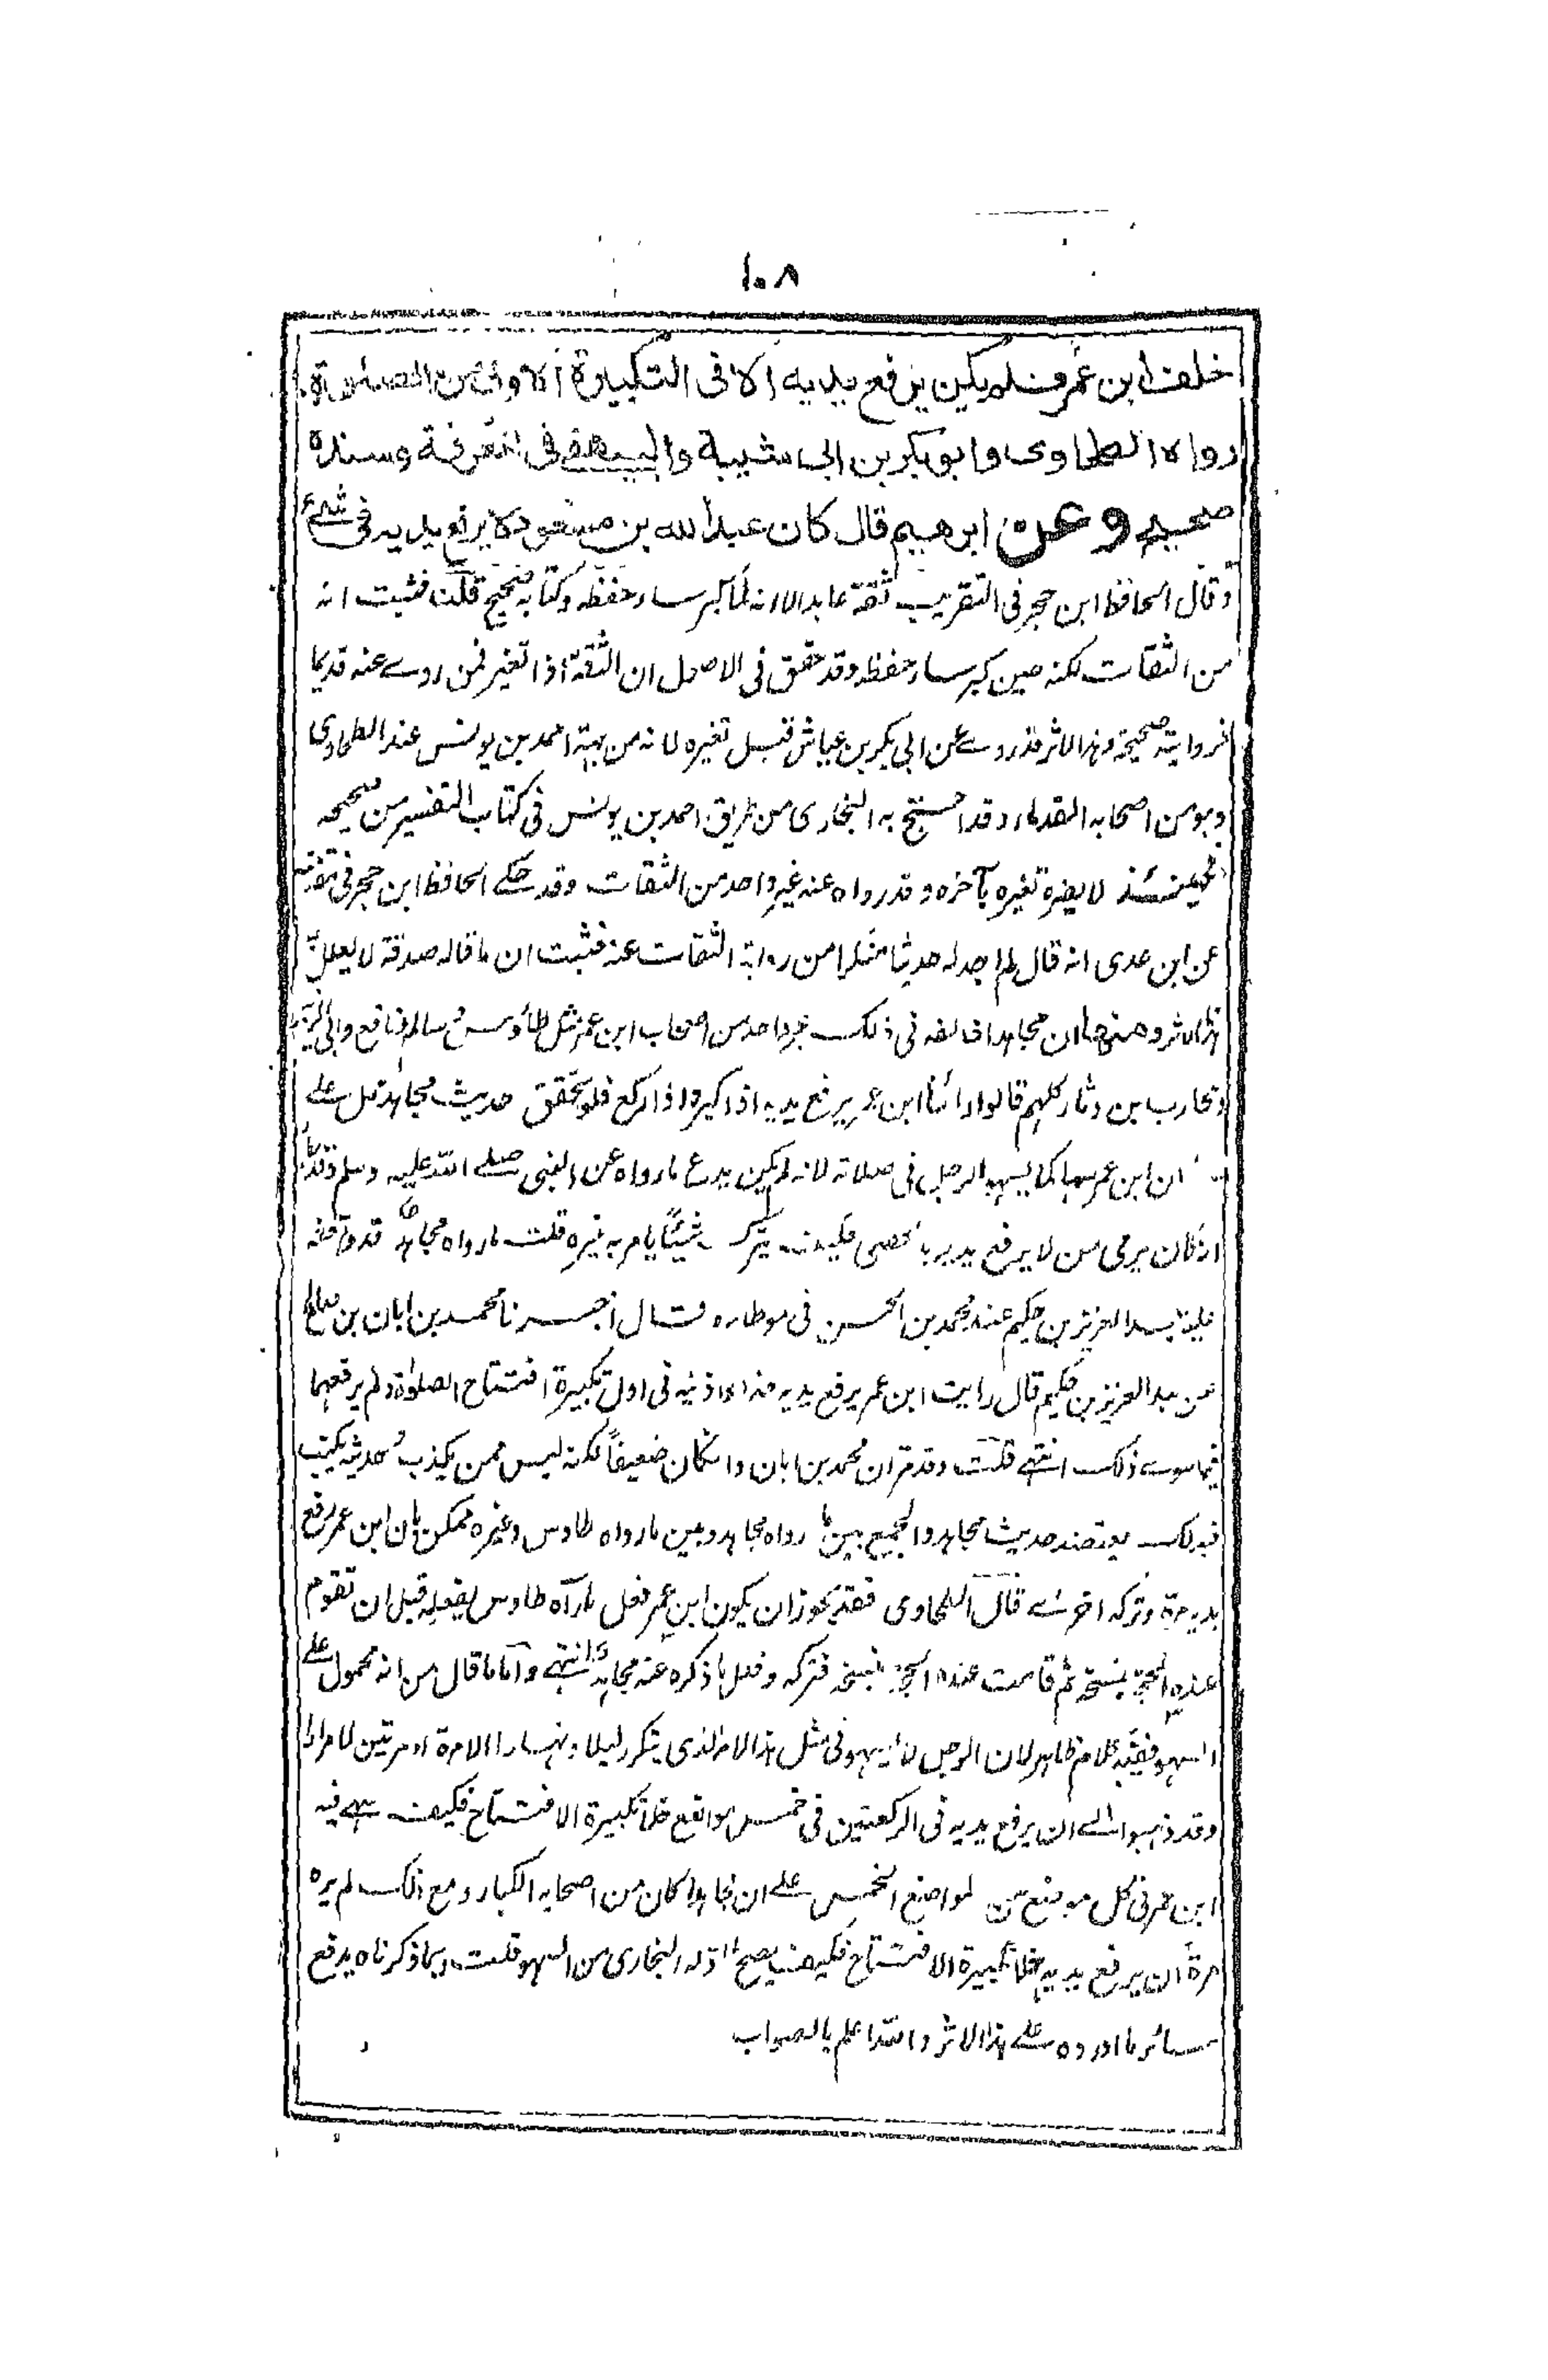 ١٠٨
خلف ابن عمر فلم يكن يرفع يديه الا فى التكبيرة الاولى من الصلوة
رواه الطحاوى وابو بكر بن ابى شيبة والبيهقى فى المعرفة وسنده
صحيح وعن ابرهيم قال كان عبد الله بن مسعود لا يرفع يديه فى شئ
وقال الحافظ ابن حجر فى التقريب ثقة عابد الا انه لما كبر ساء حفظه وكتابه صحيح قلت فثبت انه
من الثقات لكنه حين كبر ساء حفظه وقد حقق فى الاصول ان الثقة اذا تغير فمن روى عنه قديما
فروايته صحيحة وهذا الاثر قد روى عن ابى بكر بن عياش قبل تغيره لانه من جهة احمد بن يونس عند الطحاوى
وهو من اصحابه القدماء وقد احتج به البخارى من طريق احمد بن يونس فى كتاب التفسير من صحيحه
فحينئذ لا يضره تغيره بآخره وقد رواه عنه غير واحد من الثقات وقد حكى الحافظ ابن حجر فى مقدمته
عن ابن عدى انه قال لم اجد له حديثا منكرا من رواية الثقات عنه فثبت ان ما قاله صدقة لا يعلل
هذا الاثر ومنها ان مجاهدا خالفه فى ذلك غير واحد من اصحاب ابن عمر مثل طاؤس وسالم ونافع وابى الزبير
ومحارب بن دثار كلهم قالوا رأينا ابن عمر يرفع يديه اذا كبر واذا ركع فلو تحقق حديث مجاهد حمل على
ان ابن عمر سها كما يسهو الرجل فى صلاته لانه لم يكن يدع ما رواه عن النبى صلى الله عليه وسلم وقد
اذ كان يرمى من لا يرفع يديه بالحصى فكيف يترك شيئا يامر به غيره قلت ما رواه مجاهد قد وافقه
عليه عبد العزيز بن حكيم عند محمد بن الحسن فى موطاه قال اخبرنا محمد بن ابان بن صالح
عن عبد العزيز بن حكيم قال رايت ابن عمر يرفع يديه حذاء اذنيه فى اول تكبيرة افتتاح الصلوة ولم يرفعهما
فيما سوى ذلك انتهى قلت وقد مر ان محمد بن ابان وان كان ضعيفا لكنه ليس ممن يكذب وحديثه يكتب
فبذلك يعتضد حديث مجاهد والجمع بين ما رواه مجاهد وبين ما رواه طاوس وغيره ممكن بان ابن عمر رفع
يديه مرة وتركه اخرى قال الطحاوى فقد يجوز ان يكون ابن عمر فعل ما رآه طاوس يفعله قبل ان تقوم
عنده الحجة بنسخه ثم قامت عنده الحجة بنسخه فتركه وفعل ما ذكره عنه مجاهد انتهى واما ما قال من انه محمول على
السهو ففيه كلام ظاهر لان الرجل انما يسهو فى مثل هذا الامر الذى يتكرر ليلا ونهارا الا مرة او مرتين لا مرارا
وقد ذهبوا الى ان يرفع يديه فى الركعتين فى خمس مواقع خلا تكبيرة الافتتاح فكيف سهى فيه
ابن عمر فى كل موضع من المواضع الخمس على ان مجاهدا كان من اصحابه الكبار ومع ذلك لم يره
مرة ان يرفع يديه خلا تكبيرة الافتتاح فكيف يصح ما اوله البخارى من السهو قلت وبما ذكرناه يدفع
سائر ما اورده على هذا الاثر والله اعلم بالصواب